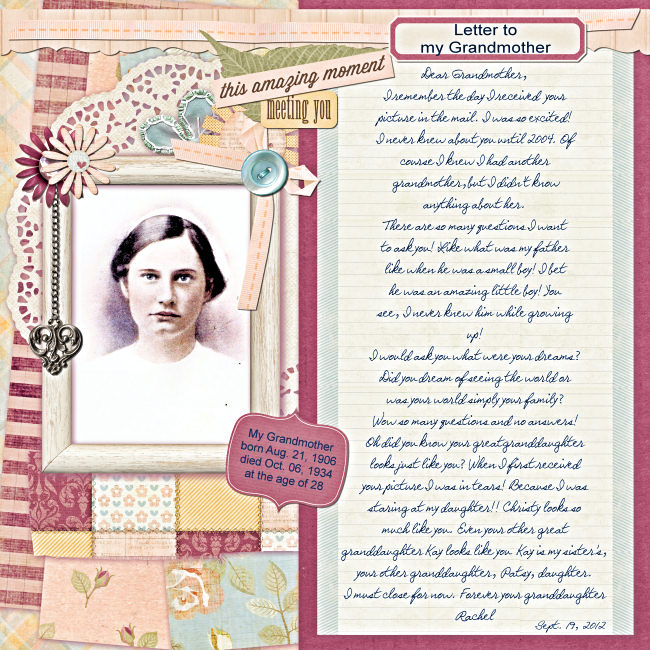 Letter to
my Grandmother
this amazing moment
meeting you
Dear Grandmother,
I remember the day I received your
picture in the mail. I was so excited!
I never knew about you until 2004. Of
course I knew I had another
grandmother, but I didn't know
anything about her.
There are so many questions I want
to ask you! Like what was my father
like when he was a small boy! I bet
he was an amazing little boy! You
see, I never knew him while growing
up!
I would ask you what were your dreams?
Did you dream of seeing the world or
was your world simply your family?
Wow so many questions and no answers!
Oh did you know your great granddaughter
looks just like you? When I first received
your picture I was in tears! Because I was
staring at my daughter!! Christy looks so
much like you. Even your other great
granddaughter Kay looks like you. Kay is my sister's,
your other granddaughter, Patsy, daughter.
I must close for now. Forever your granddaughter
Rachel
Sept. 19, 2012
My Grandmother
born Aug. 21, 1906
died Oct. 06, 1934
at the age of 28